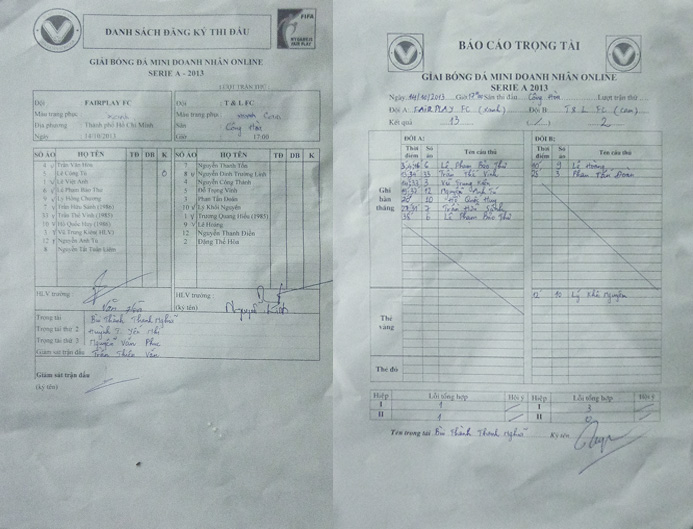 DANH SÁCH ĐĂNG KÝ THI ĐẤU
FIFA
MY GAME IS FAIR PLAY
GIẢI BÓNG ĐÁ MINI DOANH NHÂN ONLINE
SERIE A - 2013
LƯỢT TRẬN THỨ
Đội FAIRPLAY FC
Màu trang phục
Địa phương Thành phố Hồ Chí Minh
Ngày 14/10/2013
Đội T & L FC
Màu trang phục
Sân Cộng Hòa
Giờ 17:00
SỐ ÁO HỌ TÊN TĐ DB K
4 v Trần Văn Hòa
5 Lê Công Tú
1 v Lê Việt Anh
6 v Lê Phạm Bảo Thư
9 v Lý Đông Chương
7 v Trần Hữu Sanh (1986)
33 v Trần Thế Vinh (1985)
10 v Hồ Quốc Huy (1986)
3 v Vũ Trung Kiên( HLV)
12 v Nguyễn Anh Tú
8 Nguyễn Tất Toàn Liêm
SỐ ÁO HỌ TÊN TĐ DB K
7 Nguyễn Thanh Tân
8 v Nguyễn Đình Trường Linh
4 Nguyễn Công Thành
5 v Đỗ Trọng Vinh
3 Phan Tấn Đoàn
10 v Lý Khôi Nguyên
1 v Trương Quang Hiếu (1983)
9 v Lê Hoàng
12 Nguyễn Thanh Điền
2 Đặng Thế Hòa
HLV trưởng
Văn Hòa
HLV trưởng
(ký tên)
Trọng tài Bùi Thành Thanh Nghiêu
Trọng tài thứ 2 Huỳnh T. Yến Nhi
Trọng tài thứ 3 Nguyễn Văn Phúc
Giám sát trận đấu Trần Thiếu Văn
Giám sát trận đấu
(ký tên)
BÁO CÁO TRỌNG TÀI
GIẢI BÓNG ĐÁ MINI DOANH NHÂN ONLINE
SERIE A 2013
Ngày 14/10/2013 Giờ 17h00 Sân thi đấu Cộng Hòa Lượt trận thứ
Đội A: FAIRPLAY FC (Xanh) Đội B: T & L FC (Cam)
Kết quả 13 ( / ) 2
ĐỘI A: ĐỘI B:
Thời điểm Số áo Tên cầu thủ Thời điểm Số áo Tên cầu thủ
Ghi bàn thắng
6 Lê Phạm Bảo Thư
9 Lê Hoàng
33 Trần Thế Vinh
3 Phan Tấn Đoàn
3 Vũ Trung Kiên
12 Nguyễn Anh Tú
10 Hồ Quốc Huy
7 Trần Hữu Sanh
6 Lê Phạm Bảo Thư
Thẻ vàng
12 10 Lý Khôi Nguyên
Thẻ đỏ
Hiệp Lỗi tổng hợp Hội ý Hiệp Lỗi tổng hợp Hội ý
I 1 I 3
II 1 II 0
Tên trọng tài Bùi Thành Thanh Nghiêu Ký tên